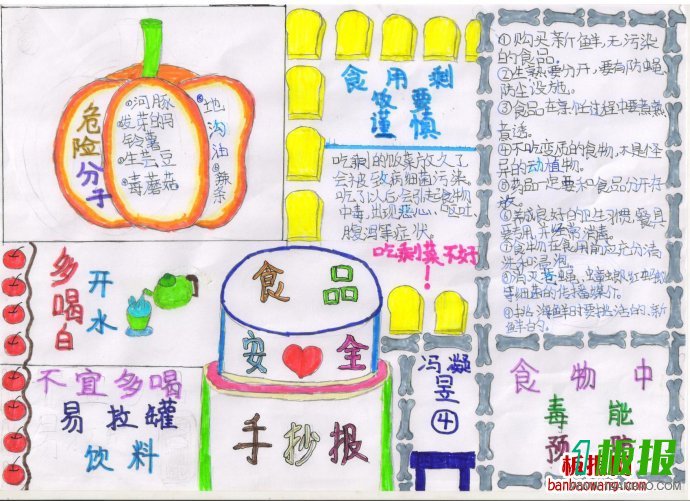 危险分子
①河豚
②发芽的
马铃薯
④生芸豆
⑤毒蘑菇
⑥地沟油
食用剩
饭要
谨慎
吃剩的饭菜放久了
会被致病细菌污染。
吃了以后会引起食物
中毒,出现恶心、呕吐、
腹泻等症状。
吃剩菜不好!
①购买新鲜,无污染
的食品。
②生熟要分开,要有防蝇、
防尘设施。
③食品在
④不吃变质的食物,
异的动植物。
⑤药品一定要和食品分开存
放。
⑥养成良好的卫生习惯,餐具
⑦食物在食用前应充分清
洗
⑧消灭苍蝇、蟑螂
等细菌的传播媒介。
⑨挑海鲜时要挑活的、新
鲜的。
多喝白
开水
食品
安全
手抄报
不宜多喝
易拉罐
饮料
冯凝
昱
④
食物中
毒能
预防
板报
banbaowang.com